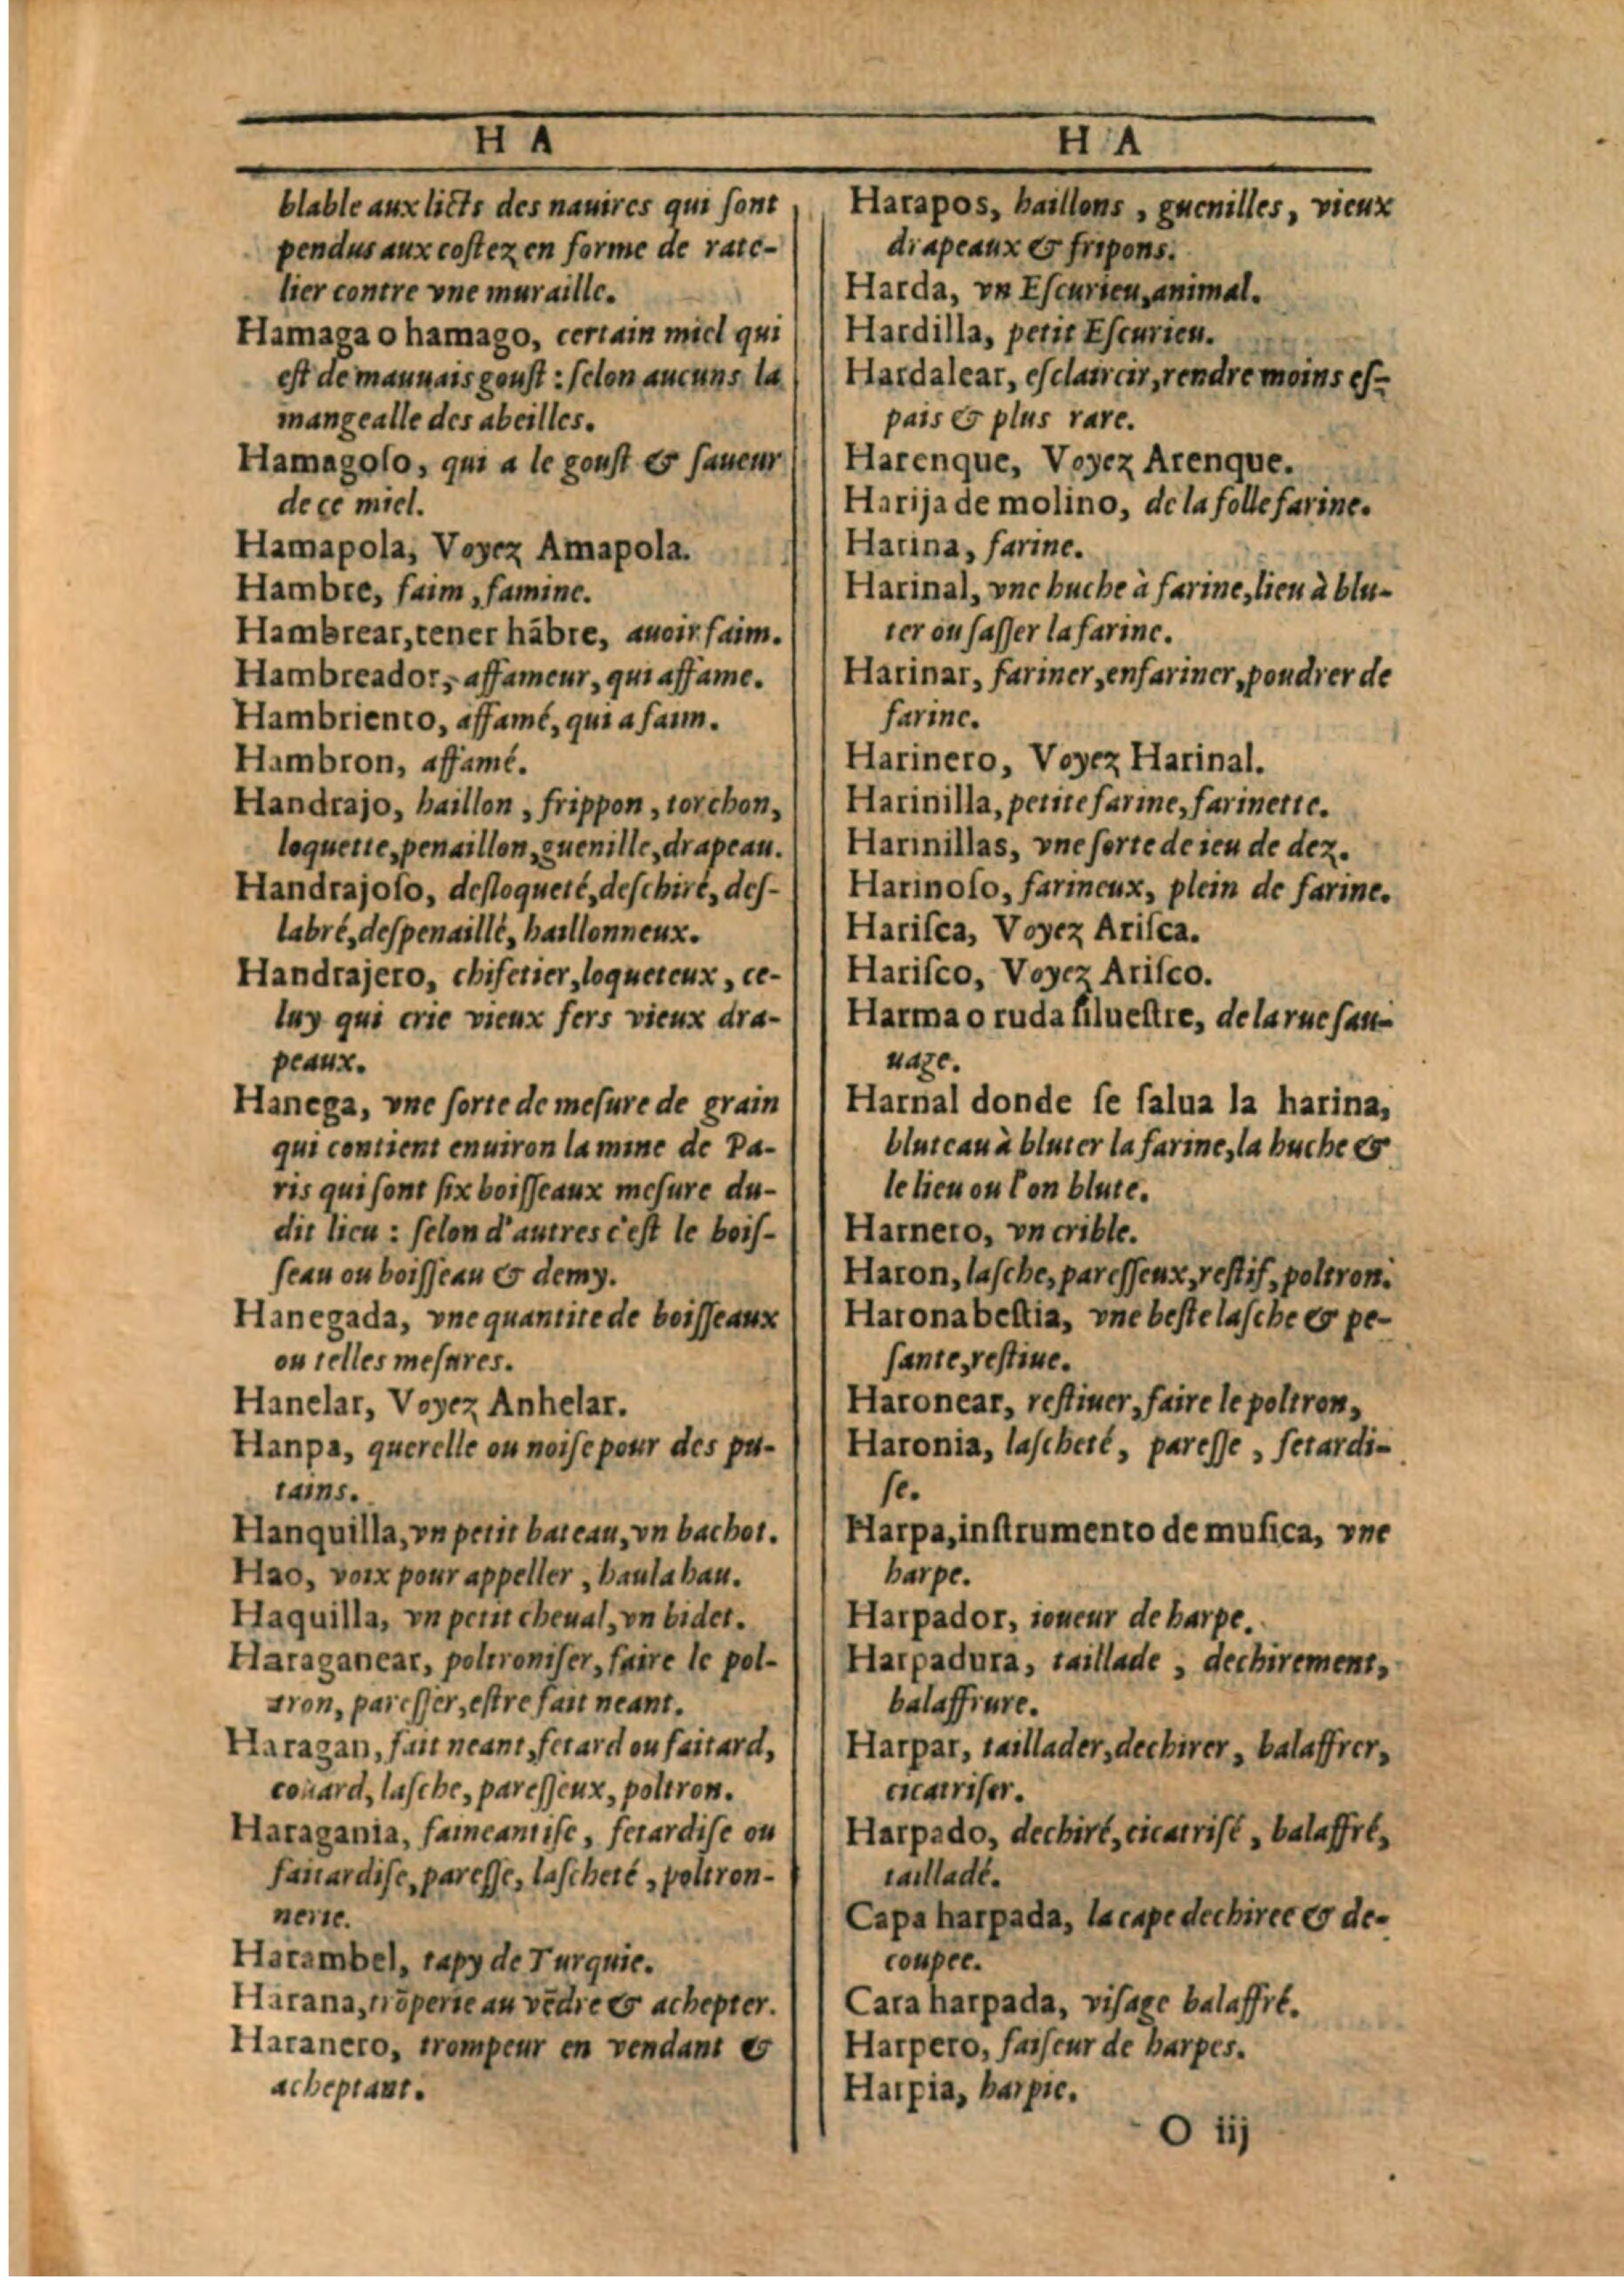 H A
blable aux licts des nauires qui ſont
pendus aux coſtez en forme de rate-
lier contre vne muraille.
Hamaga o hamago, certain miel qui
eſt de mauuais gouſt : ſelon aucuns la
mangealle des abeilles.
Hamagoſo, qui a le gouſt & ſaueur
de ce miel.
Hamapola, Voyez Amapola.
Hambre, faim, famine.
Hambrear, tener hãbre, auoir faim.
Hambreador, affameur, qui affame.
Hambriento, affamé, qui a faim.
Hambron, affamé.
Handrajo, haillon, frippon, torchon,
loquette, penaillon, guenille, drapeau.
Handrajoſo, deſloqueté, deſchiré, deſ-
labré, deſpenaillé, haillonneux.
Handrajero, chifetier, loqueteux, ce-
luy qui crie vieux fers vieux dra-
peaux.
Hanega, vne ſorte de meſure de grain
qui contient enuiron la mine de Pa-
ris qui ſont ſix boiſſeaux meſure du-
dit lieu : ſelon d'autres c'eſt le boiſ-
ſeau ou boiſſeau & demy.
Hanegada, vne quantite de boiſſeaux
ou telles meſures.
Hanelar, Voyez Anhelar.
Hanpa, querelle ou noiſe pour des pu-
tains.
Hanquilla, vn petit bateau, vn bachot.
Hao, voix pour appeller, haula hau.
Haquilla, vn petit cheual, vn bidet.
Haraganear, poltroniſer, faire le pol-
tron, pareſſer, eſtre fait neant.
Haragan, fait neant, fetard ou faitard,
couard, laſche, pareſſeux, poltron.
Haragania, faineantiſe, fetardiſe ou
faitardiſe, pareſſe, laſcheté, poltron-
nerie.
Harambel, tapy de Turquie.
Harana, trõperie au vẽdre & achepter.
Haranero, trompeur en vendant &
acheptant.
H A
Harapos, haillons, guenilles, vieux
drapeaux & fripons.
Harda, vn Eſcurieu, animal.
Hardilla, petit Eſcurieu.
Hardalear, eſclaircir, rendre moins eſ-
pais & plus rare.
Harenque, Voyez Arenque.
Harija de molino, de la folle farine.
Harina, farine.
Harinal, vne huche à farine, lieu à blu-
ter ou ſaſſer la farine.
Harinar, fariner, enfariner, poudrer de
farine.
Harinero, Voyez Harinal.
Harinilla, petite farine, farinette.
Harinillas, vne ſorte de ieu de dez.
Harinoſo, farineux, plein de farine.
Hariſca, Voyez Ariſca.
Hariſco, Voyez Ariſco.
Harma o ruda ſilueſtre, de la rue ſau-
uage.
Harnal donde ſe ſalua la harina,
bluteau à bluter la farine, la huche &
le lieu ou l'on blute.
Harnero, vn crible.
Haron, laſche, pareſſeux, reſtif, poltron.
Harona beſtia, vne beſte laſche & pe-
ſante, reſtiue.
Haronear, reſtiuer, faire le poltron,
Haronia, laſcheté, pareſſe, fetardi-
ſe.
Harpa, inſtrumento de muſica, vne
harpe.
Harpador, ioueur de harpe.
Harpadura, taillade, dechirement,
balaffrure.
Harpar, taillader, dechirer, balaffrer,
cicatriſer.
Harpado, dechiré, cicatriſé, balaffré,
tailladé.
Capa harpada, la cape dechiree & de-
coupee.
Cara harpada, viſage balaffré.
Harpero, faiſeur de harpes.
Harpia, harpie.
O iij